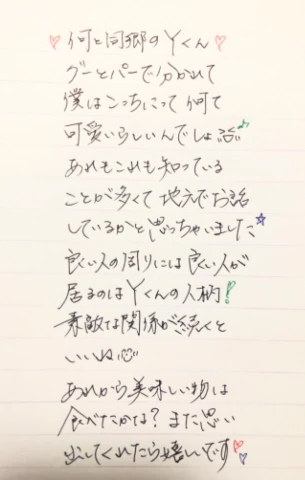 ♡何と同郷のYくん♡
グーとパーで分かれて
僕はこっちにって何て
可愛いらしいんでしょ
あれもこれも知っている
ことが多くて地元でお話
しているかと思っちゃいました☆
良い人の周りには良い人が
居るのはYくんの人柄!
素敵な関係が続くと
いいね
あれから美味しい物は
食べたかな?また思い
出してくれたら嬉しいです♡♡